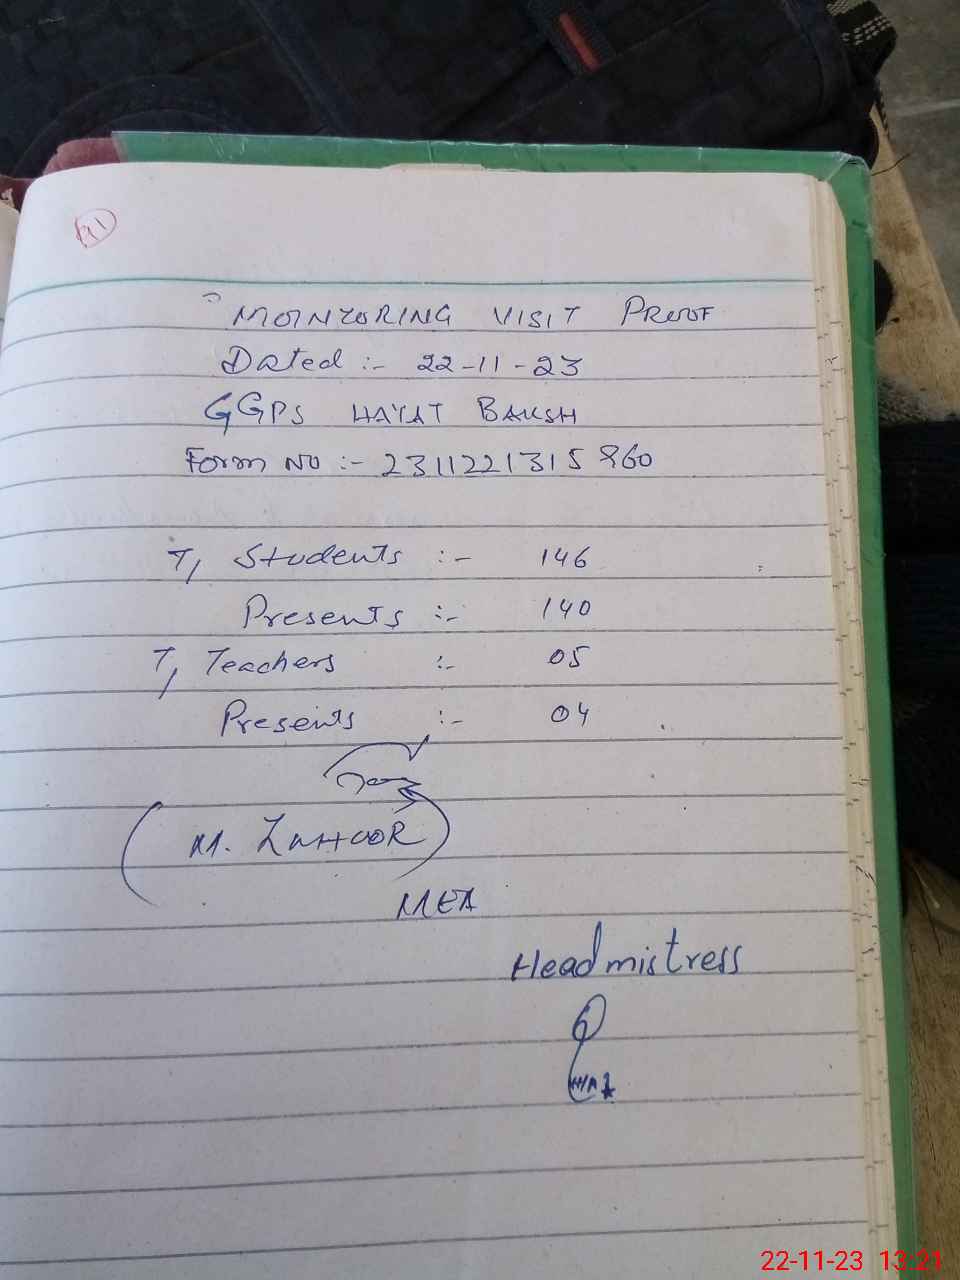 91
MONITORING VISIT PROOF
Dated :- 22-11-23
GGPS HAYAT BAKSH
Form No :- 2311221315860
T, Students :- 146
Presents :- 140
T, Teachers :- 05
Presents :- 04
(M. ZAHOOR)
MEA
Headmistress
22-11-23 13:21